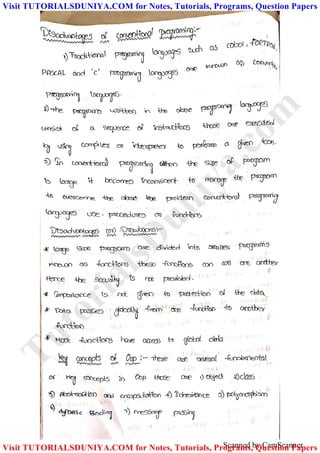 Visit TUTORIALSDUNIYA.COM for Notes, Tutorials, Programs, Question Papers
Disadvantages of conventional programming:-
1) Traditional programing languages such as cobol, FORTRAN,
PASCAL and 'c' programing languages are known as convent
programing languages.
2) The programs written in the above programing languages
consist of a sequence of instructions those are executed
by using compiler or interpreter to perform a given task.
3) In conventional programing when the size of program
is large it becomes inconvinent to manage the program
to overcome the above the problem conventional programing
languages use procedures or functions.
Disadvantages (or) Drawbacks:-
* large size programs are divided into smaller programs
known as functions these functions can call one another
Hence the security is not provided.
* Importance is not given to protection of the data
* Data passes globally from one function to another
function
* Most functions have access to global data
Key concepts of Oop :- these are several fundamental
or key concepts in Oop those are 1) object 2) class
3) Abstraction and encapsulation 4) Inheritance 5) polymorphism
6) dynamic Binding 7) message passing
TutorialsDuniya.com
Scanned by CamScanner
Visit TUTORIALSDUNIYA.COM for Notes, Tutorials, Programs, Question Papers